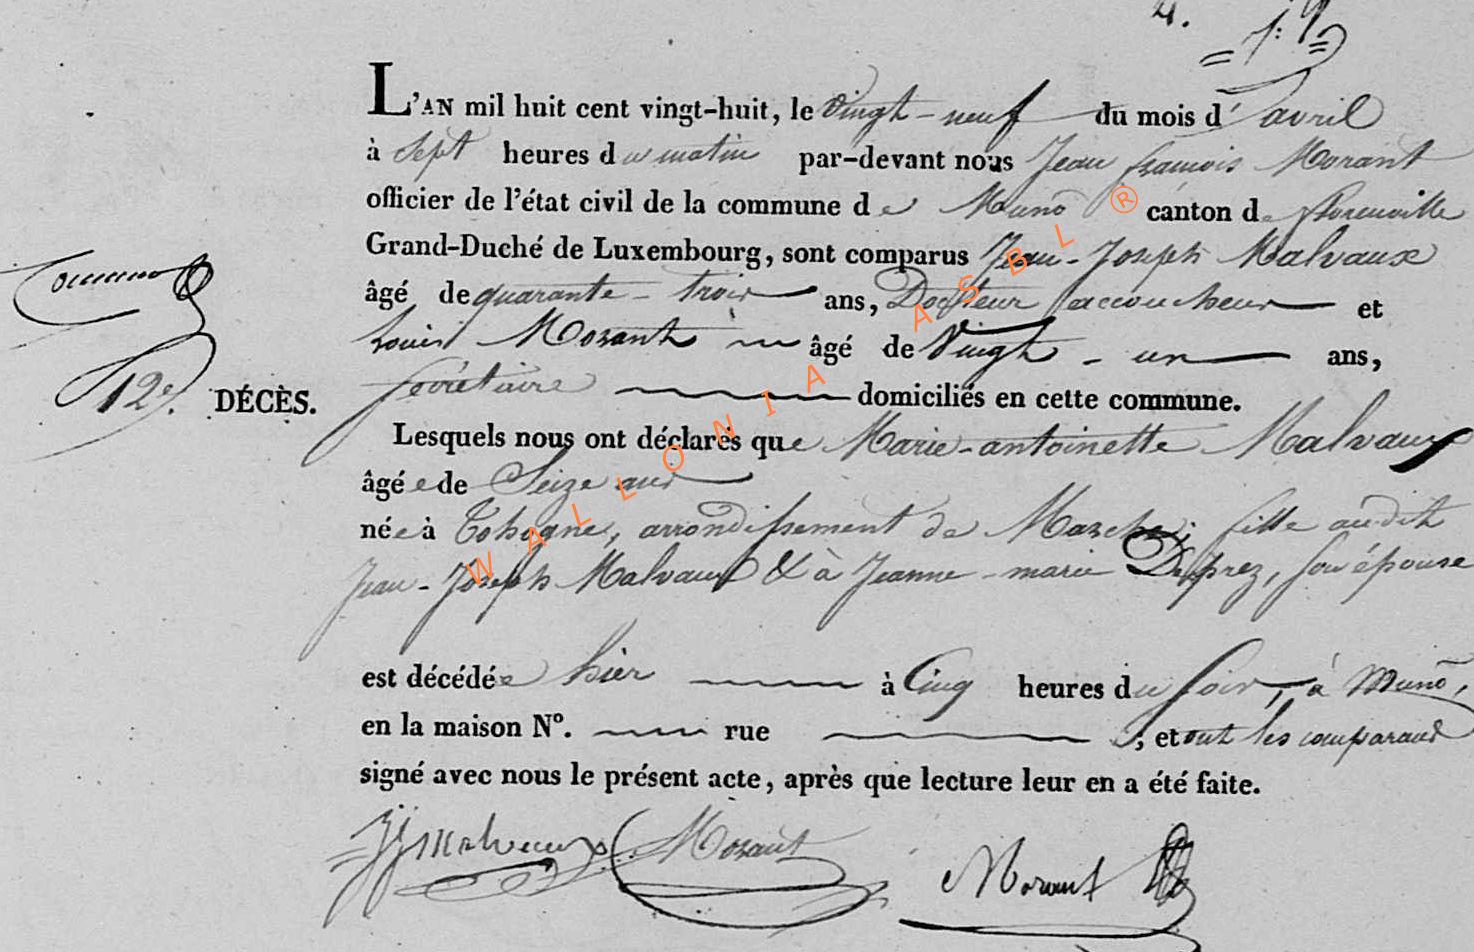 4.
L'AN mil huit cent vingt-huit, le vingt-neuf du mois d'avril
à sept heures du matin par-devant nous Jean françois Morant
officier de l'état civil de la commune de Muno canton de florenville
Grand-Duché de Luxembourg, sont comparus Jean-Joseph Malvaux
âgé de quarante-trois ans, Docteur accoucheur et
Louis Morant âgé de Vingt-un ans,
12e. DÉCÈS. secrétaire domiciliés en cette commune.
Lesquels nous ont déclarés que Marie-antoinette Malvaux
âgée de Seize ans
née à Tohogne, arrondissement de Marche; fille audit
Jean-Joseph Malvaux & à Jeanne-marie Desprez, son épouse
est décédée hier à Cinq heures du soir, à Muno,
en la maison N°. rue , et ont les comparans
signé avec nous le présent acte, après que lecture leur en a été faite.
JJ Malvaux Morant Morant
WALLONIA ASBL ®